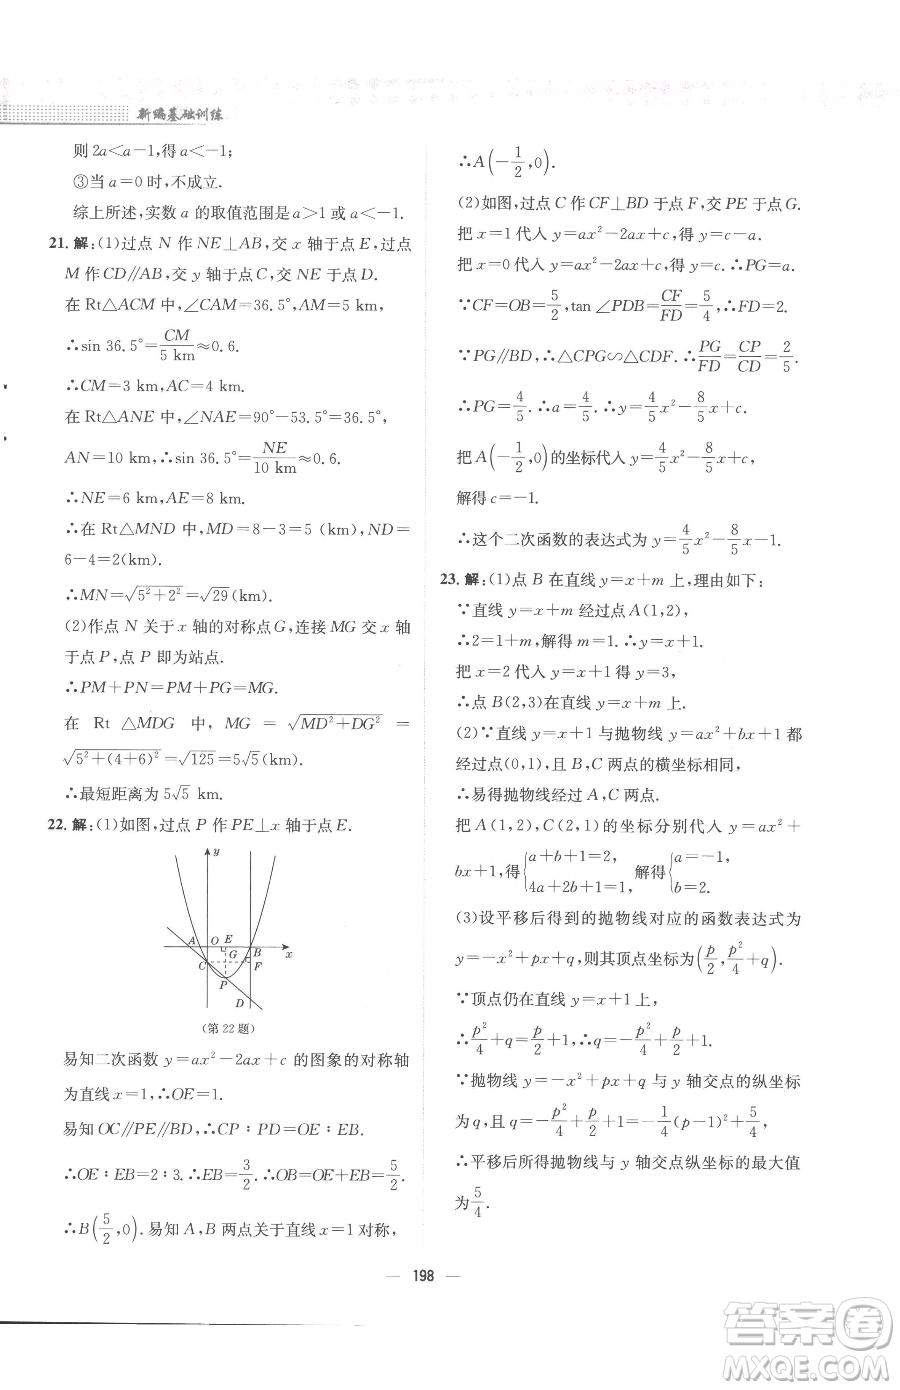 新编基础训练
则 2a<a-1,得 a<-1;
③当 a=0 时,不成立.
综上所述,实数 a 的取值范围是 a>1 或 a<-1.
21. 解:(1)过点 N 作 NE⊥AB,交 x 轴于点 E,过点
M 作 CD∥AB,交 y 轴于点 C,交 NE 于点 D.
在 Rt△ACM 中,∠CAM=36.5°,AM=5 km,
∴sin 36.5°=CM/5 km≈0.6.
∴CM=3 km,AC=4 km.
在 Rt△ANE 中,∠NAE=90°-53.5°=36.5°,
AN=10 km,∴sin 36.5°=NE/10 km≈0.6.
∴NE=6 km,AE=8 km.
∴在 Rt△MND 中,MD=8-3=5 (km),ND=
6-4=2(km).
∴MN=√(5²+2²)=√29(km).
(2)作点 N 关于 x 轴的对称点 G,连接 MG 交 x 轴
于点 P,点 P 即为站点.
∴PM+PN=PM+PG=MG.
在 Rt △MDG 中, MG = √(MD²+DG²) =
√(5²+(4+6)²)=√125=5√5(km).
∴最短距离为 5√5 km.
22. 解:(1)如图,过点 P 作 PE⊥x 轴于点 E.
y
A O E B x
G
C F
P
D
(第 22 题)
易知二次函数 y=ax²-2ax+c 的图象的对称轴
为直线 x=1,∴OE=1.
易知 OC∥PE∥BD,∴CP:PD=OE:EB.
∴OE:EB=2:3.∴EB=3/2.∴OB=OE+EB=5/2.
∴B(5/2,0).易知 A,B 两点关于直线 x=1 对称,
∴A(-1/2,0).
(2)如图,过点 C 作 CF⊥BD 于点 F,交 PE 于点 G.
把 x=1 代入 y=ax²-2ax+c 得 y=c-a.
把 x=0 代入 y=ax²-2ax+c 得 y=c.∴PG=a.
∵CF=OB=5/2,tan ∠PDB=CF/FD=5/4,∴FD=2.
∵PG∥BD,∴△CPG∽△CDF.∴PG/FD=CP/CD=2/5.
∴PG=4/5.∴a=4/5.∴y=4/5x²-8/5x+c.
把 A(-1/2,0)的坐标代入 y=4/5x²-8/5x+c,
解得 c=-1.
∴这个二次函数的表达式为 y=4/5x²-8/5x-1.
23. 解:(1)点 B 在直线 y=x+m 上,理由如下:
∵直线 y=x+m 经过点 A(1,2),
∴2=1+m,解得 m=1.∴y=x+1.
把 x=2 代入 y=x+1 得 y=3,
∴点 B(2,3)在直线 y=x+m 上.
(2)∵直线 y=x+1 与抛物线 y=ax²+bx+1 都
经过点(0,1),且 B,C 两点的横坐标相同,
∴易得抛物线经过 A,C 两点.
把 A(1,2),C(2,1) 的坐标分别代入 y=ax²+
bx+1,得{a+b+1=2, 4a+2b+1=1, 解得{a=-1, b=2.
(3)设平移后得到的抛物线对应的函数表达式为
y=-x²+px+q,则其顶点坐标为(p/2,p²/4+q).
∵顶点仍在直线 y=x+1 上,
∴p²/4+q=p/2+1,∴q=-p²/4+p/2+1.
∵抛物线 y=-x²+px+q 与 y 轴交点的纵坐标
为 q,且 q=-p²/4+p/2+1=-1/4(p-1)²+5/4,
∴平移后所得抛物线与 y 轴交点纵坐标的最大值
为5/4.
— 198 —
答案圈
MXQE.COM